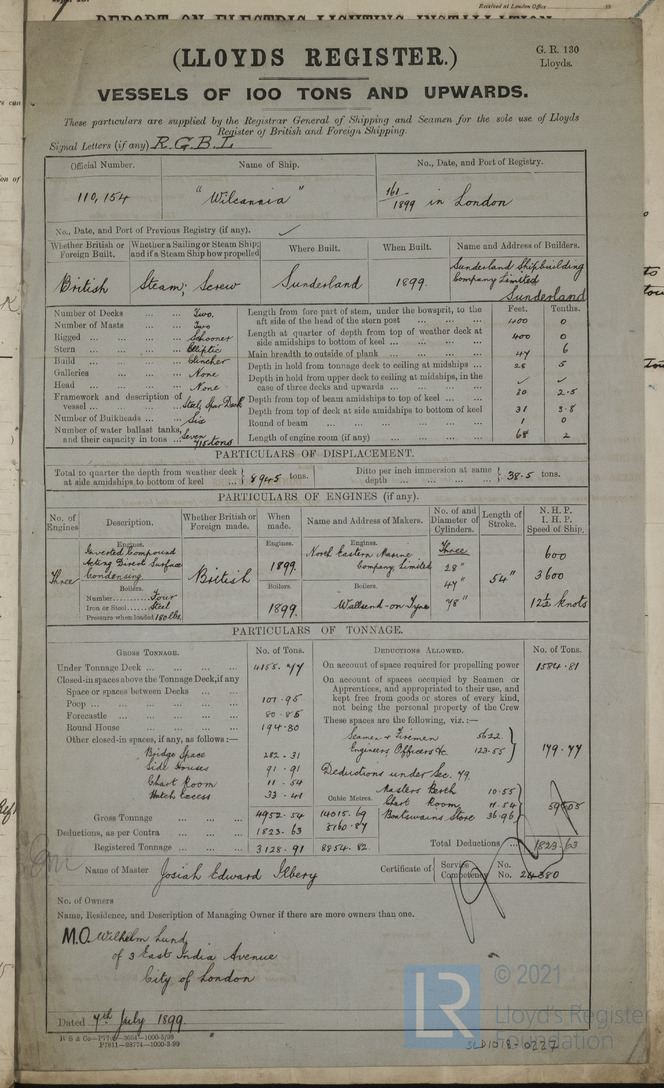 REPORT ON ELECTRIC LIGHTING INSTALLATION
Received at London Office
(LLOYDS REGISTER.)
G. R. 130
Lloyds.
VESSELS OF 100 TONS AND UPWARDS.
These particulars are supplied by the Registrar General of Shipping and Seamen for the sole use of Lloyds
Register of British and Foreign Shipping.
Signal Letters (if any) R.G.B.L
Official Number. Name of Ship. No., Date, and Port of Registry.
110,154 "Wilcannia" 161/1899 in London
No., Date, and Port of Previous Registry (if any). ✓
Whether British or Foreign Built. Whether a Sailing or Steam Ship; and if a Steam Ship how propelled Where Built. When Built. Name and Address of Builders.
British Steam; Screw Sunderland 1899. Sunderland Shipbuilding Company Limited Sunderland
Number of Decks ... ... Two.
Number of Masts ... ... Two
Rigged ... ... ... Schooner
Stern ... ... ... Elliptic
Build ... ... ... Clincher
Galleries ... ... None
Head ... ... ... None
Framework and description of vessel ... ... Steel, Spar Deck
Number of Bulkheads ... ... Six
Number of water ballast tanks, and their capacity in tons ... Seven 715 tons
Feet. Tenths.
Length from fore part of stem, under the bowsprit, to the aft side of the head of the stern post ... ... 400 0
Length at quarter of depth from top of weather deck at side amidships to bottom of keel ... ... 400 0
Main breadth to outside of plank ... ... 47 6
Depth in hold from tonnage deck to ceiling at midships ... 28 5
Depth in hold from upper deck to ceiling at midships, in the case of three decks and upwards ... ✓ ✓
Depth from top of beam amidships to top of keel ... 30 2.5
Depth from top of deck at side amidships to bottom of keel 31 3.8
Round of beam ... ... 1 0
Length of engine room (if any) ... ... 68 2
PARTICULARS OF DISPLACEMENT.
Total to quarter the depth from weather deck at side amidships to bottom of keel ... 8945 tons. Ditto per inch immersion at same depth ... 38.5 tons.
PARTICULARS OF ENGINES (if any).
No. of Engines Description. Whether British or Foreign made. When made. Name and Address of Makers. No. of and Diameter of Cylinders. Length of Stroke. N. H. P. I. H. P. Speed of Ship.
Engines. Engines. Engines.
Three Inverted Compound Acting Direct Surface Condensing British 1899. North Eastern Marine Company, Limited Three 28" 47" 78" 54" 600 3600 12½ knots
Boilers. Boilers. Boilers.
Number.......... Four
Iron or Steel..... Steel
Pressure when loaded 180 lbs.
1899. Wallsend-on-Tyne
PARTICULARS OF TONNAGE.
GROSS TONNAGE. No. of Tons. DEDUCTIONS ALLOWED. No. of Tons.
Under Tonnage Deck ... ... 4155.77
Closed-in spaces above the Tonnage Deck, if any
Space or spaces between Decks ... ...
Poop ... ... ... 107.95
Forecastle ... ... 80.85
Round House ... ... 194.80
Other closed-in spaces, if any, as follows:—
Bridge Space 282.31
Side Houses 91.91
Chart Room 11.54
Hatch Excess 33.41
Cubic Metres.
Gross Tonnage ... ... 4952.54 14015.69
Deductions, as per Contra ... 1823.63 5160.87
Registered Tonnage ... 3128.91 8854.82
On account of space required for propelling power 1584.81
On account of spaces occupied by Seamen or Apprentices, and appropriated to their use, and kept free from goods or stores of every kind, not being the personal property of the Crew
These spaces are the following, viz.:—
Seamen & Firemen 56.22
Engineers Officers &c 123.55 } 179.77
Deductions under Sec. 79.
Masters Berth 10.55
Chart Room 11.54
Boatswains Store 36.96 } 59.05
Total Deductions ... 1823.63
Name of Master Josiah Edward Ilbery Certificate of { Service No. Competency No. 24380
No. of Owners
Name, Residence, and Description of Managing Owner if there are more owners than one.
M.O. Wilhelm Lund
of 3 East India Avenue
City of London
Dated 7th July 1899.
© 2021
LR
Lloyd's Register
Foundation
SLD1018-0227